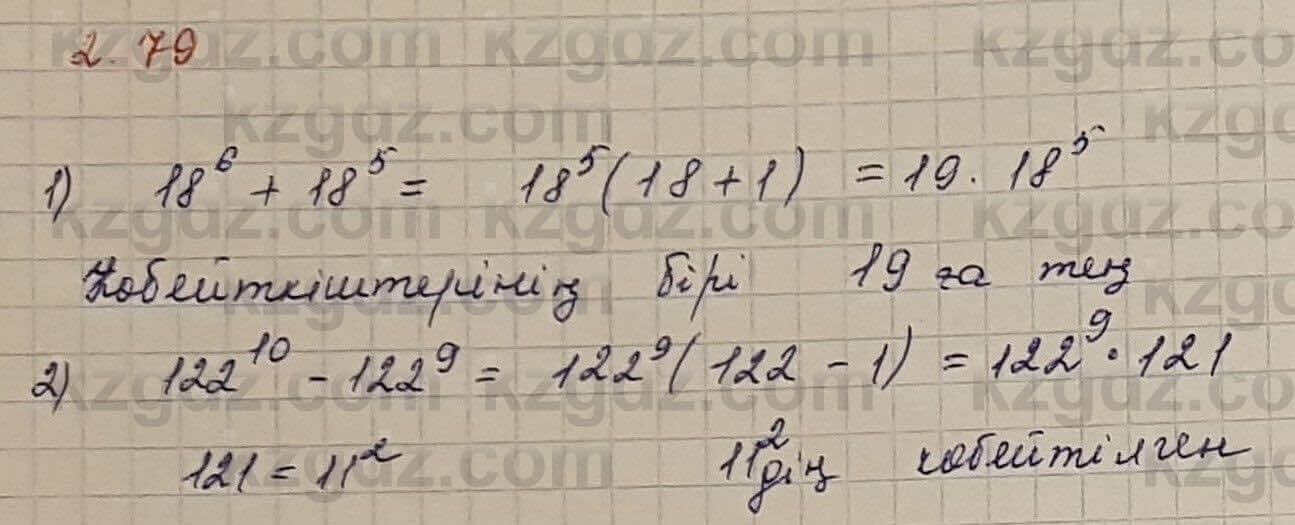 2.79
1) 18⁶ + 18⁵ = 18⁵(18+1) = 19 · 18⁵
Көбейткіштерінің бірі 19 ға тең
2) 122¹⁰ - 122⁹ = 122⁹(122 - 1) = 122⁹ · 121
121 = 11² 11²дің көбейтілген